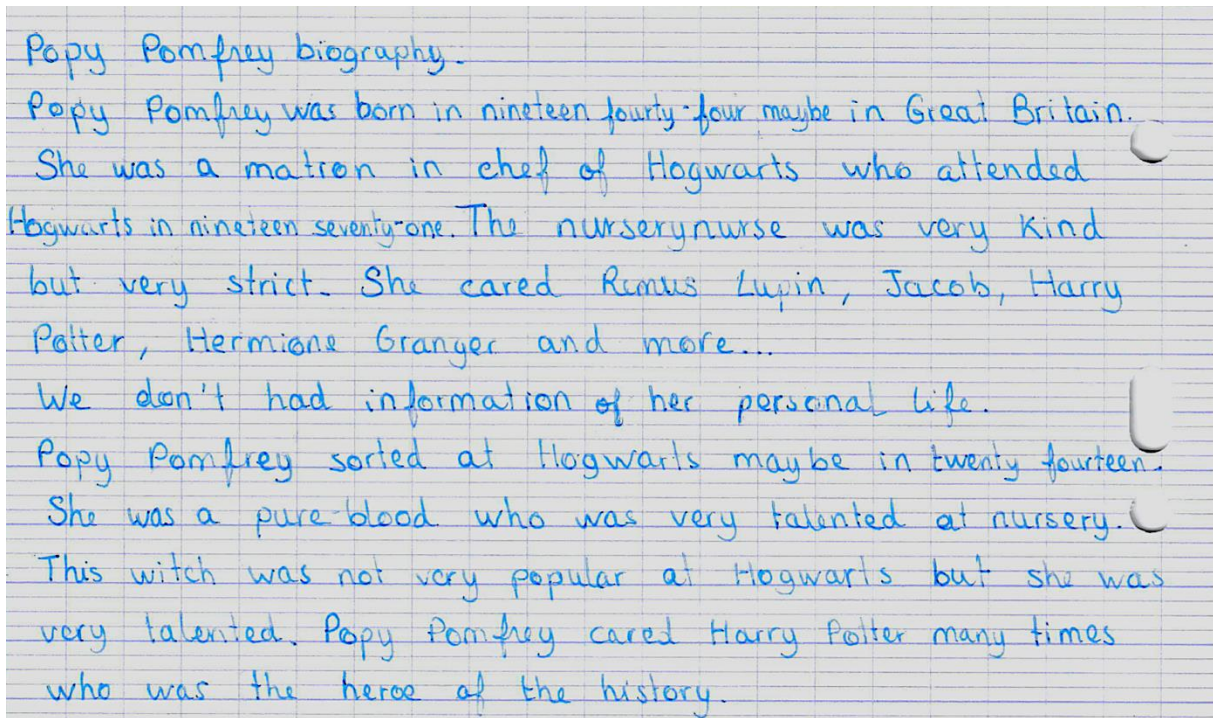 Popy Pomfrey biography.
Popy Pomfrey was born in nineteen fourty-four maybe in Great Britain.
She was a matron in chef of Hogwarts who attended
Hogwarts in nineteen seventy-one. The nurserynurse was very kind
but very strict. She cared Remus Lupin, Jacob, Harry
Potter, Hermione Granger and more...
We don't had information of her personal life.
Popy Pomfrey sorted at Hogwarts maybe in twenty fourteen.
She was a pure-blood who was very talented at nursery.
This witch was not very popular at Hogwarts but she was
very talented. Popy Pomfrey cared Harry Potter many times
who was the heroe of the history.